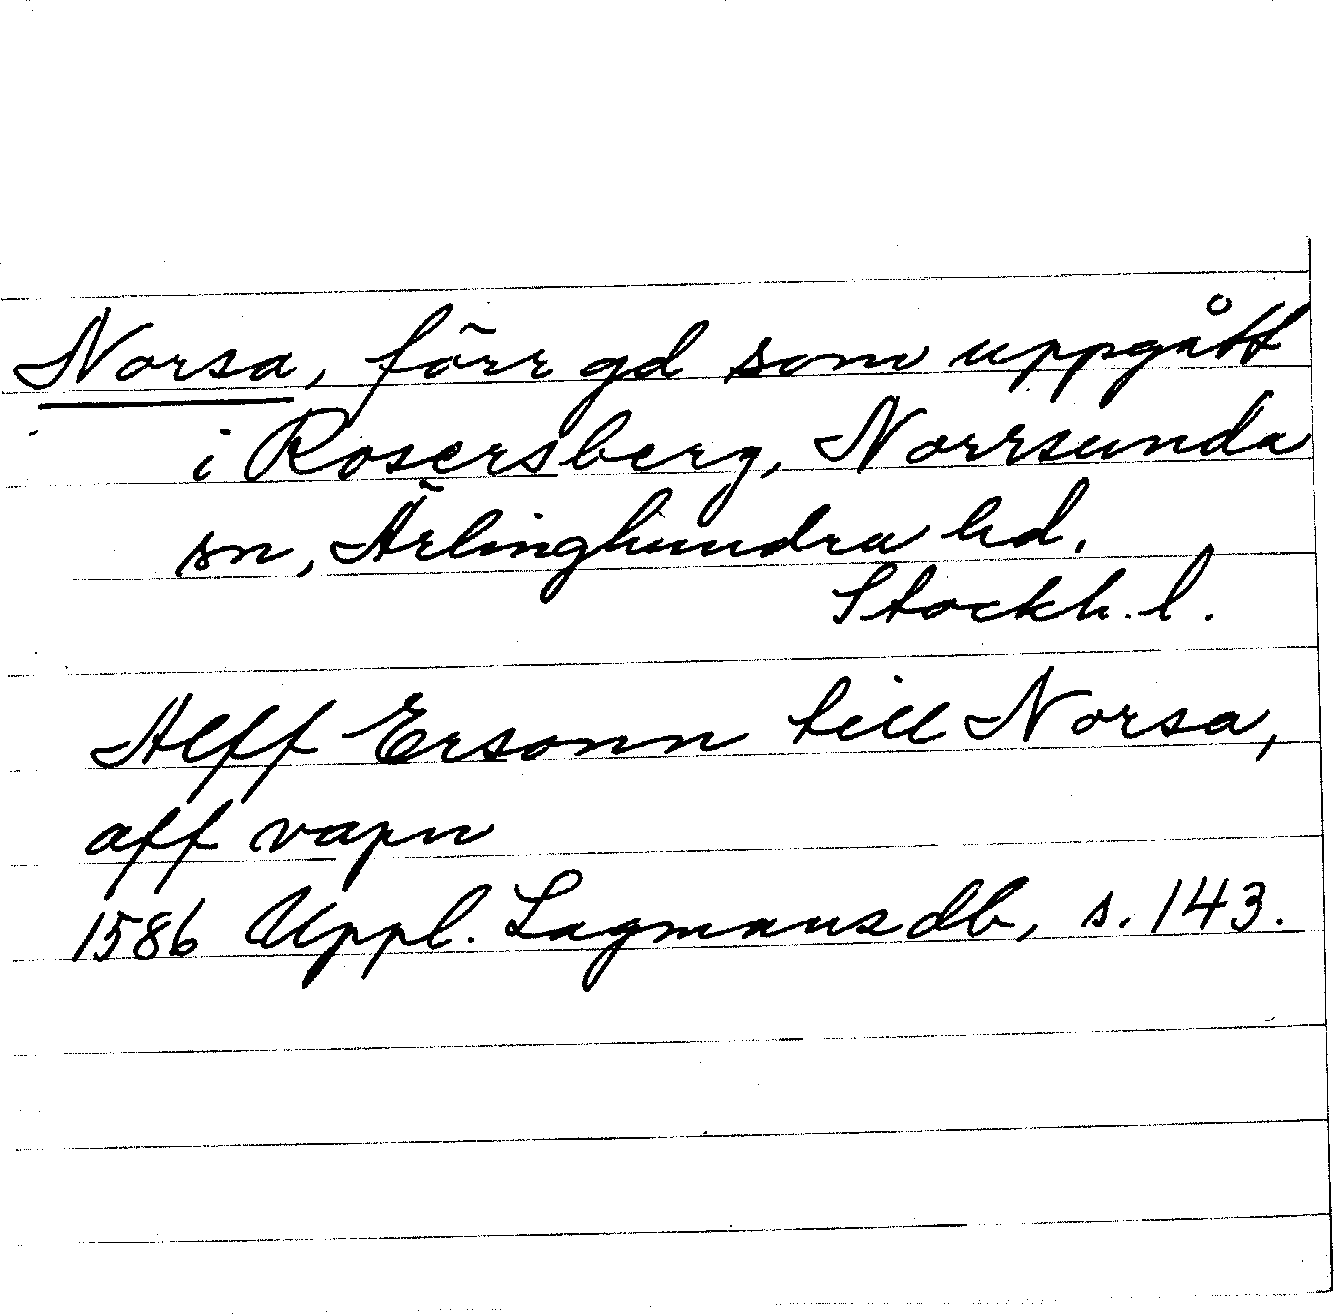 Norsa, förr gd som uppgått
i Rosersberg, Norrsunda
sn, Ärlinghundra hd.
Stockh. l.
Alff Ersonn till Norsa,
aff vapn
1586 Uppl. Lagmansdb, s. 143.